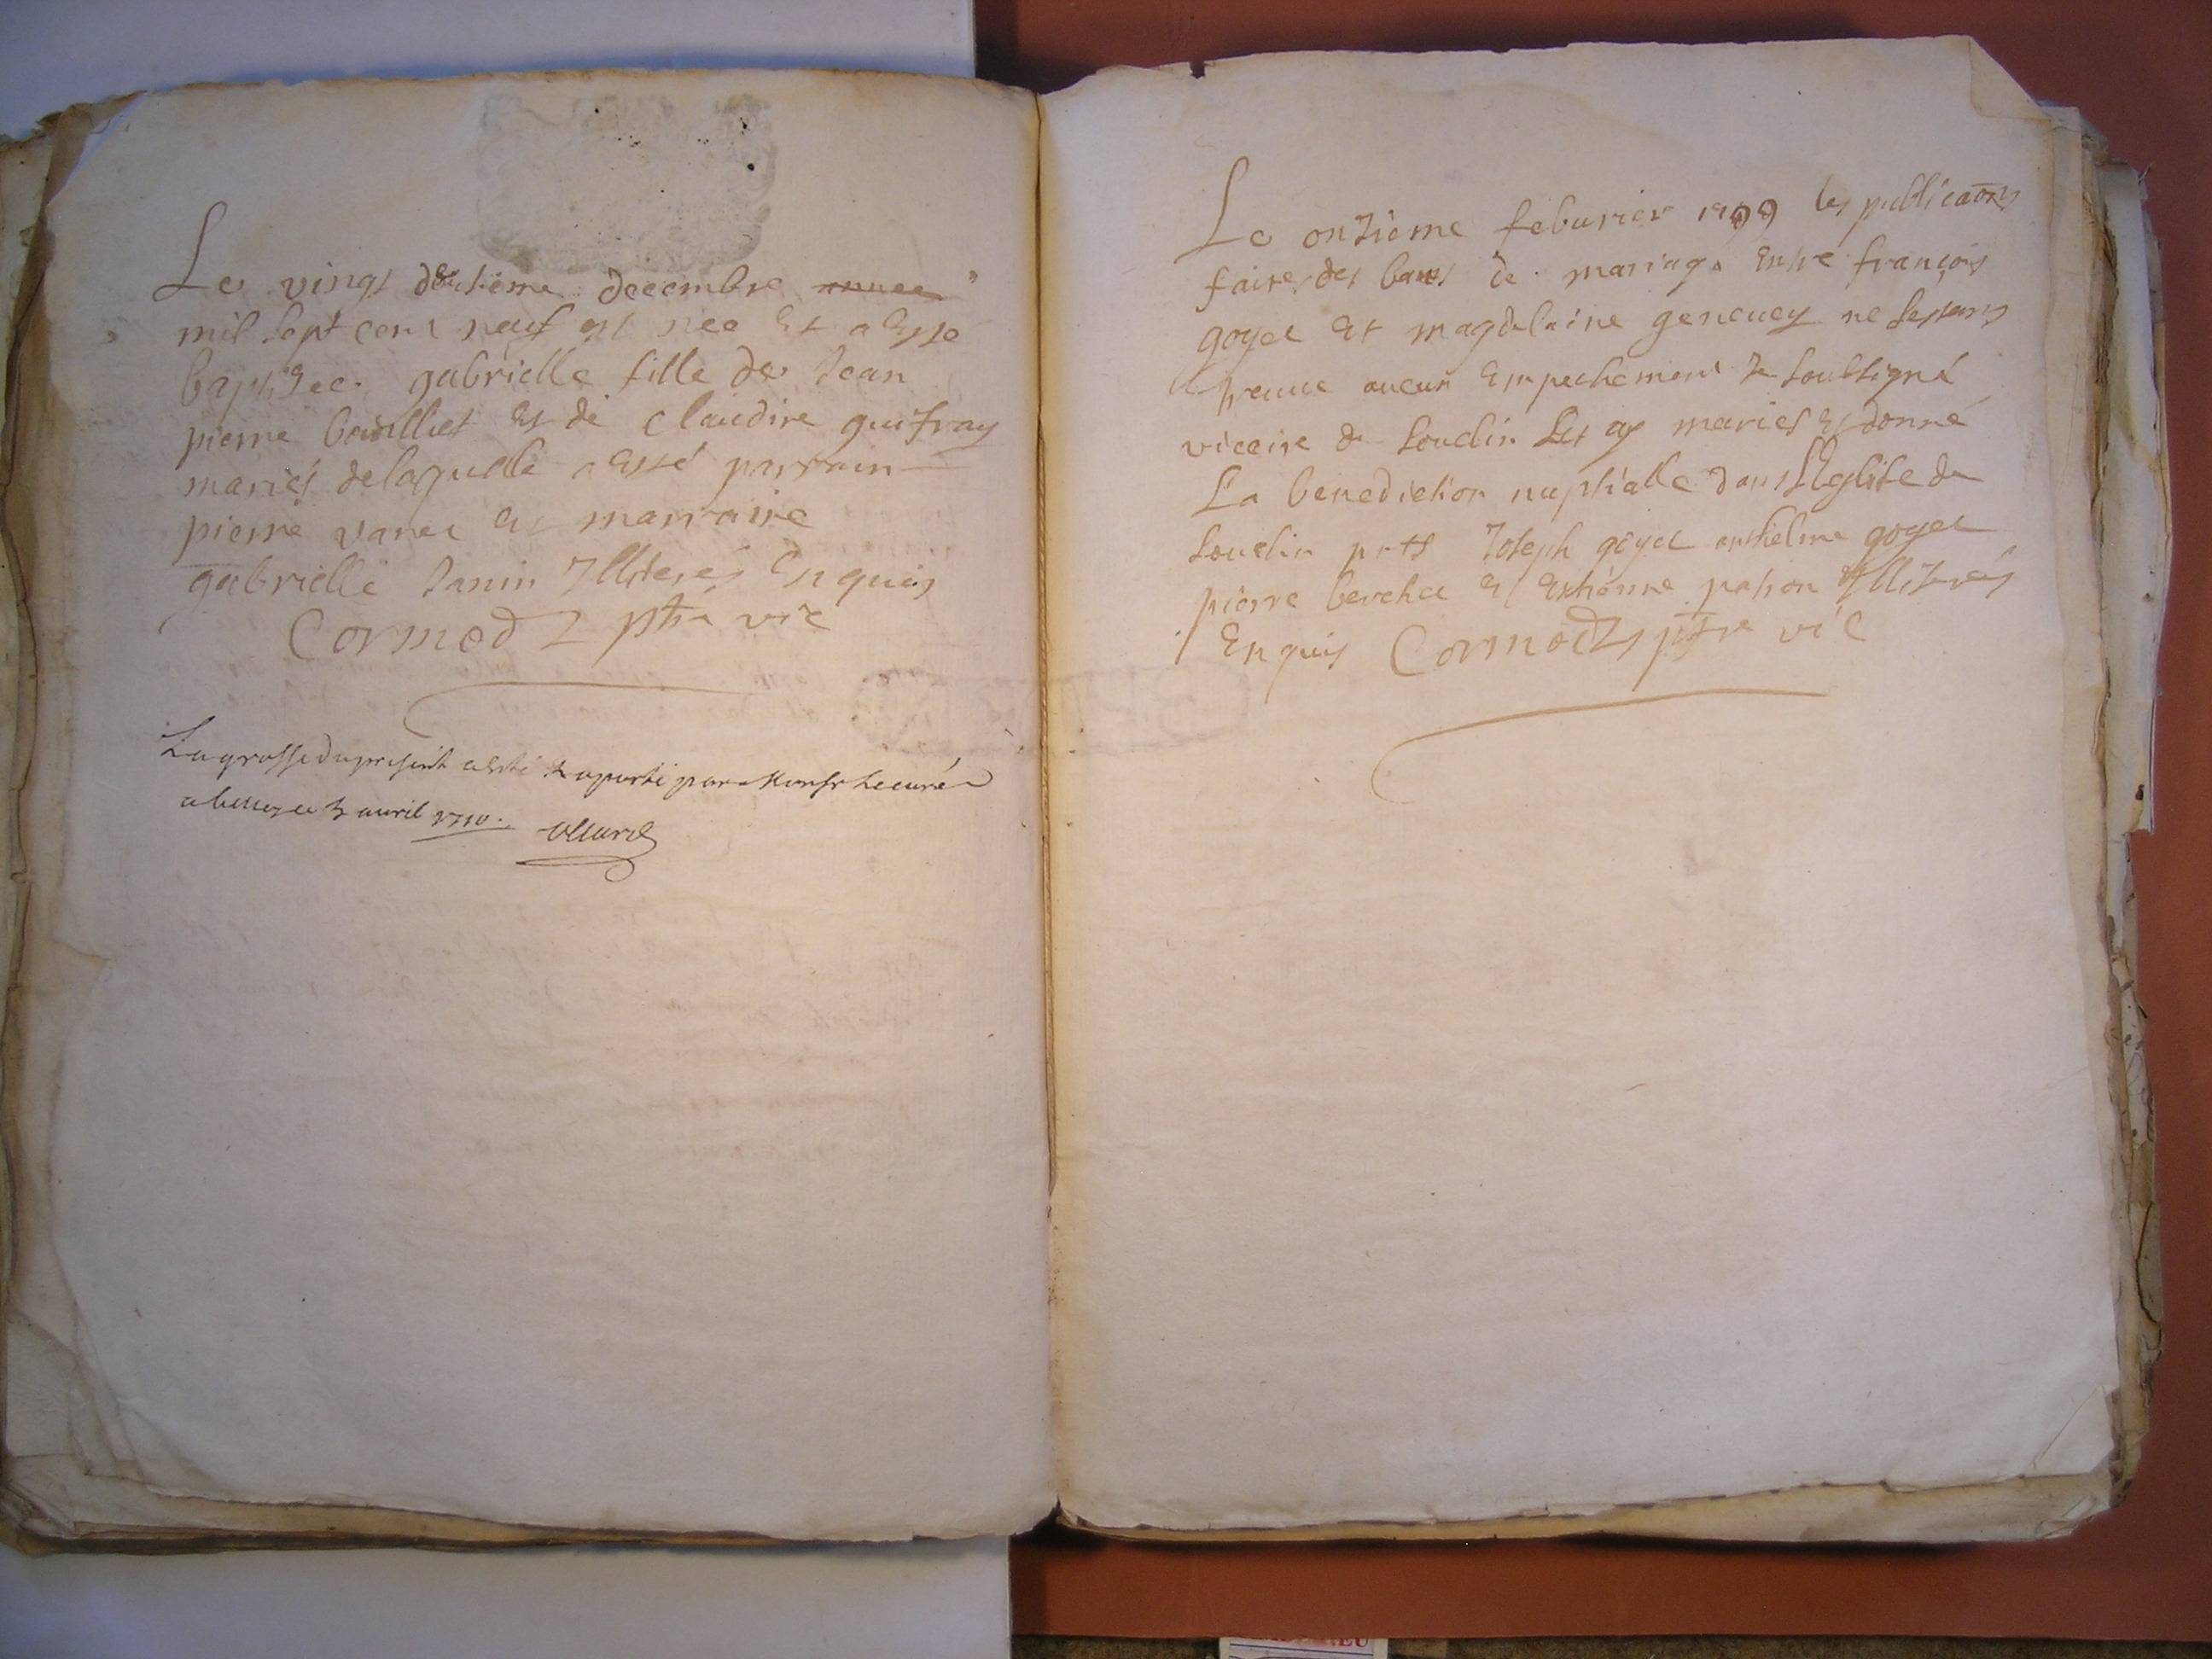 Le vingt deusieme decembre annee
mil sept cent neuf est nee Et a Este
baptisee gabrielle fille de Jean
pierre bouilliet Et de Claudine guifray
mariés de laquelle a Esté parrain
pierre varet Et marraine
gabrielle Janin Illiterés Enquis
Cormod ptre vic
La grosse du present a esté raporté par Monsr le curé
a belley ce 3 avril 1710.
Le onzieme feburier 1709 les publicaons
faites des bans de mariage Entre françois
goyet Et magdelaine genevey ne sestans
treuve aucun Empechement Je soubsigné
vicaire de Souclin Les ay mariés Et donné
La benediction nuptialle dans L'Eglise de
Souclin pnts Joseph goyet anthelme goyet
pierre berchet Et Estienne Illiterés
Enquis Cormod ptre vic